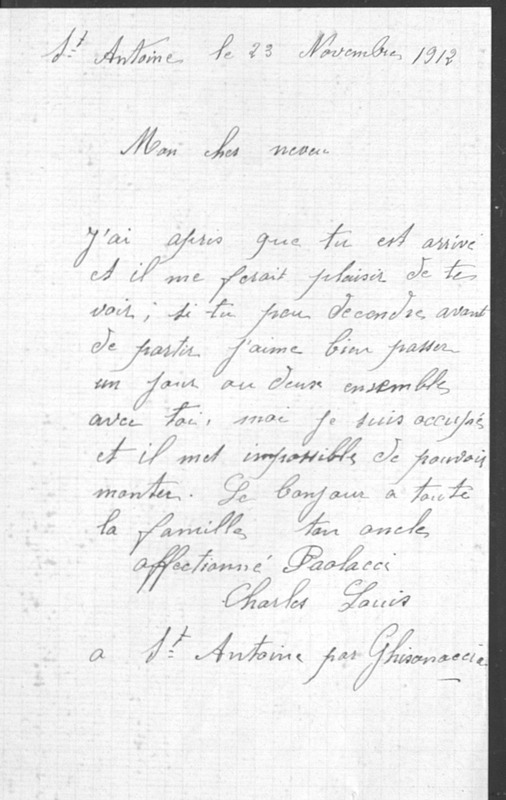 St Antoine le 23 Novembre 1912
Mon cher neveu
J'ai apris que tu est arrivé
et il me ferait plaisir de te
voir ; si tu peu decendre avant
de partir j'aime bien passer
un jour ou deux ensemble
avec toi, moi je suis occupé
et il met impossible de pouvoir
monter. Le bonjour a toute
la famille ton oncle
affectionné Paolacci
Charles Louis
a St Antoine par Ghisonaccia